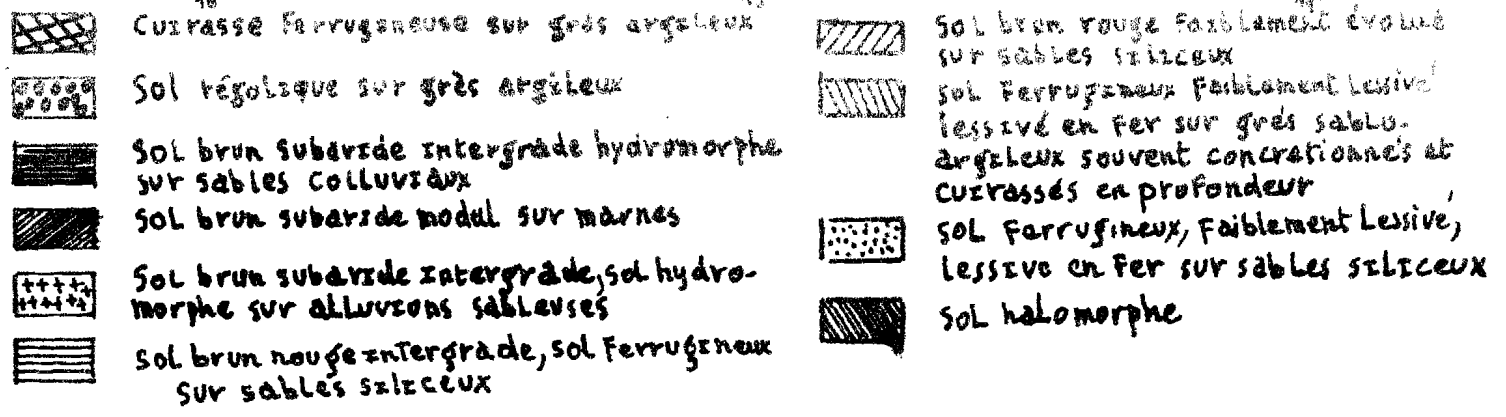 Cuirasse Ferrugineuse sur grés argileux
Sol régolique sur grès argileux
Sol brun subaride intergrade hydromorphe
sur sables colluviaux
Sol brun subaride modal sur marnes
Sol brun subaride intergrade, sol hydro-
morphe sur alluvions sableuses
Sol brun rouge intergrade, sol Ferrugineux
sur sables siliceux
Sol brun rouge Faiblement évolué
sur sables siliceux
Sol Ferrugineux Faiblement Lessivé
lessivé en Fer sur grés sablo-
argileux souvent concrétionnés et
cuirassés en profondeur
Sol Ferrugineux, Faiblement Lessivé,
lessive en Fer sur sables siliceux
Sol halomorphe